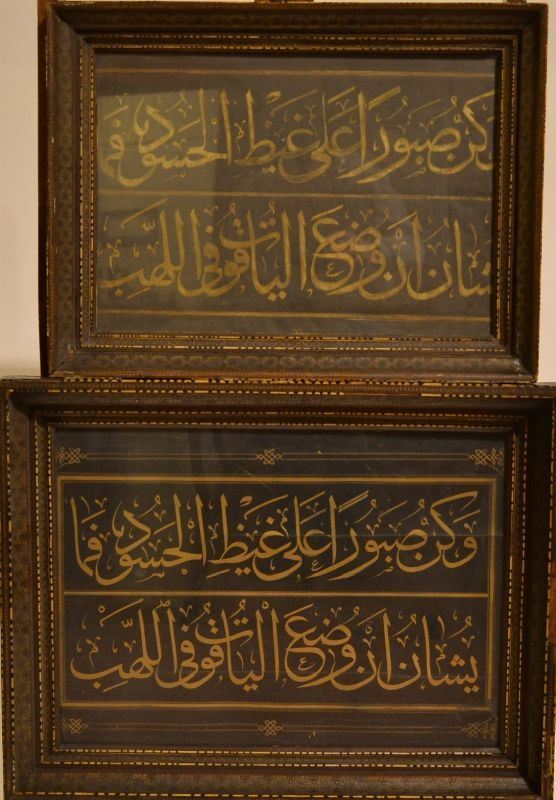 وَكُنْ صَبُورًا عَلَى غَيْظِ الحَسُودِ فَمَا
يُشَانُ إنْ وُضِعَ اليَاقُوتُ فِى اللَّهَبْ
وَكُنْ صَبُورًا عَلَى غَيْظِ الحَسُودِ فَمَا
يُشَانُ إنْ وُضِعَ اليَاقُوتُ فِى اللَّهَبْ